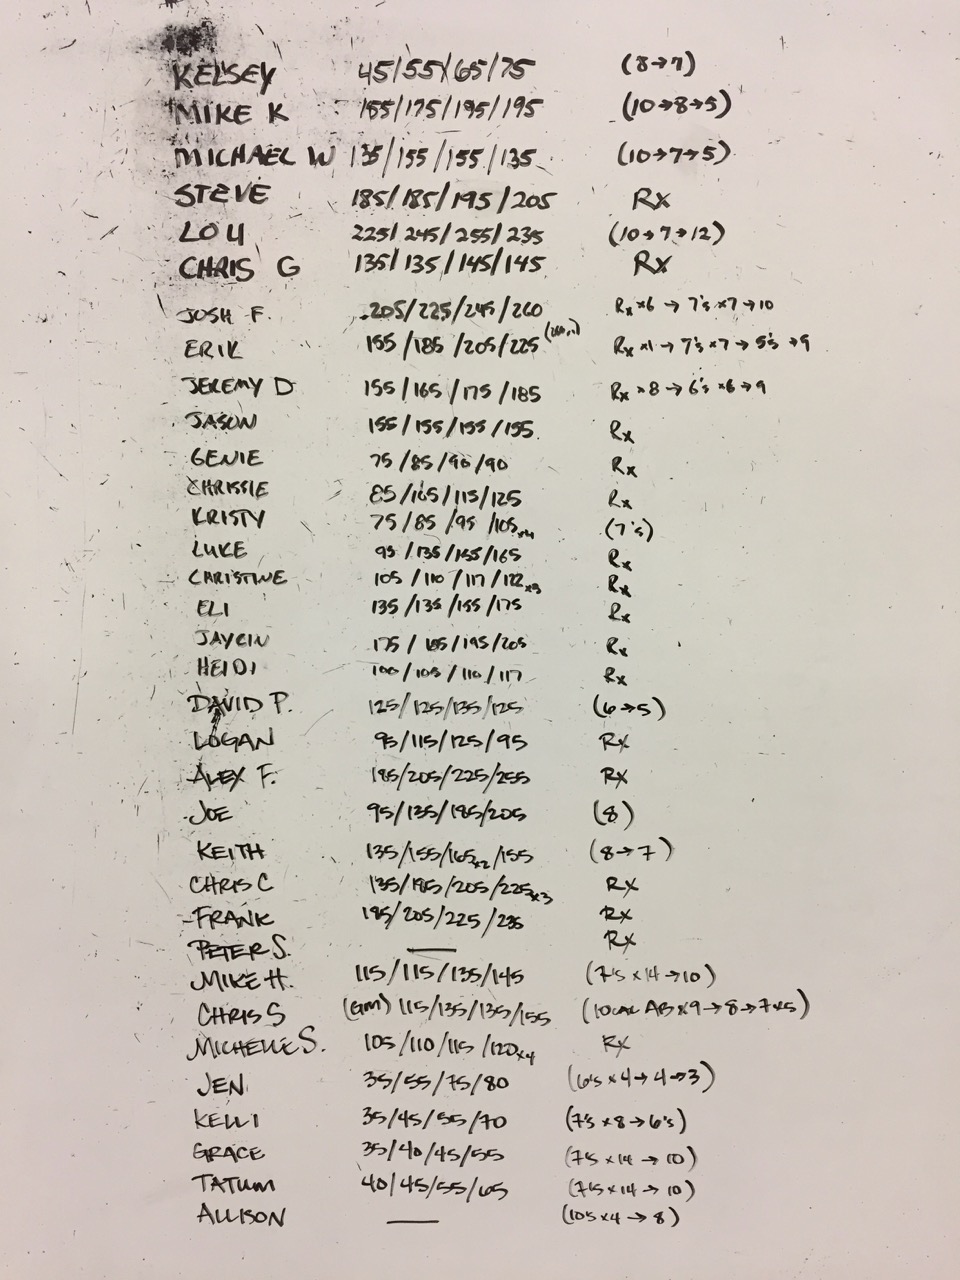 KELSEY 45/55/65/75 (8→7)
MIKE K 155/175/195/195 (10→8→5)
MICHAEL W 135/155/155/135 (10→7→5)
STEVE 185/185/195/205 Rx
LOU 225/245/255/235 (10→7→12)
CHRIS G 135/135/145/145 Rx
JOSH F. 205/225/245/260 Rx×6 → 7's×7→10
ERIK 155/185/205/225 Rx×1→7's×7→5's→9
JEREMY D 155/165/175/185 Rx×8→6's×6→9
JASON 155/155/155/155 Rx
GENIE 75/85/90/90 Rx
CHRISSIE 85/105/115/125 Rx
KRISTY 75/85/95/105×4 (7's)
LUKE 95/135/155/165 Rx
CHRISTINE 105/110/117/122×3 Rx
ELI 135/135/155/175 Rx
JAYCIN 175/185/195/205 Rx
HEIDI 100/105/110/117 Rx
DAVID P. 125/125/135/125 (6→5)
LOGAN 95/115/125/95 Rx
ALEX F. 185/205/225/255 Rx
JOE 95/135/185/205 (8)
KEITH 135/155/165×2/155 (8→7)
CHRIS C 135/185/205/225×3 Rx
FRANK 185/205/225/235 Rx
PETER S. — Rx
MIKE H. 115/115/135/145 (7's×14→10)
CHRIS S (GM) 115/135/135/155 (10CAL AB×9→8→7×5)
MICHELLE S. 105/110/115/120×4 Rx
JEN 35/55/75/80 (6's×4→4→3)
KELLI 35/45/55/70 (7's×8→6's)
GRACE 35/40/45/55 (7's×14→10)
TATUM 40/45/55/65 (7's×14→10)
ALLISON — (10's×4→8)